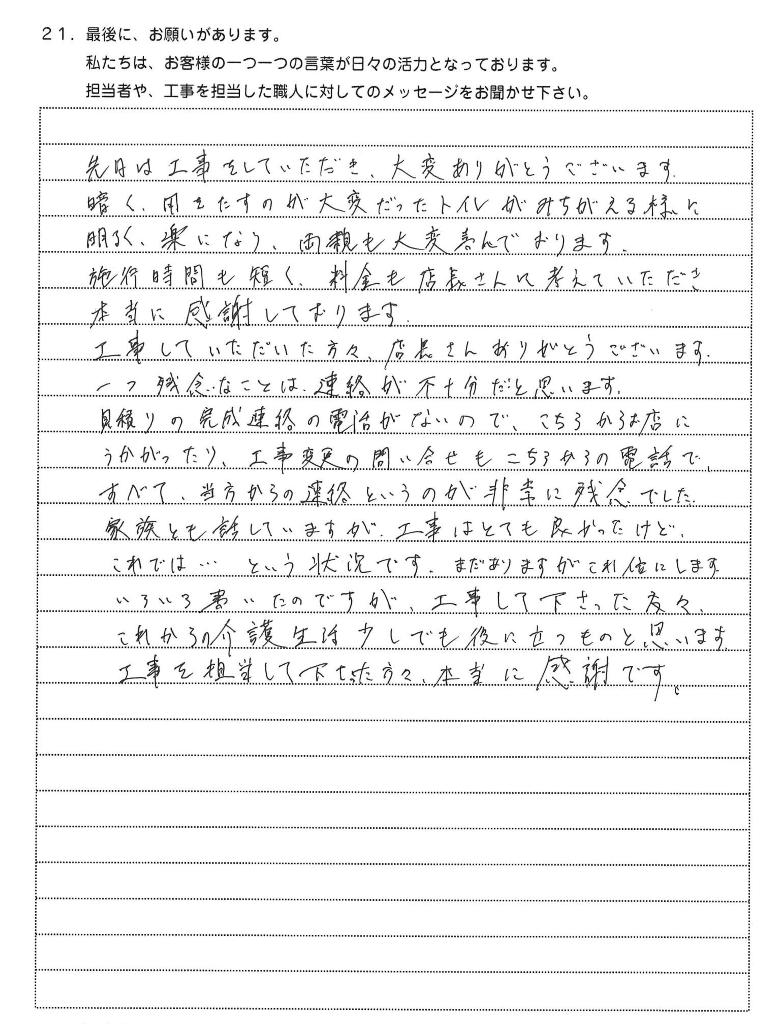 21．最後に、お願いがあります。
私たちは、お客様の一つ一つの言葉が日々の活力となっております。
担当者や、工事を担当した職人に対してのメッセージをお聞かせ下さい。
先日は工事をしていただき、大変ありがとうございます。
暗く、用をたすのが大変だったトイレがみちがえる様に
明るく、楽になり、両親も大変喜んでおります。
施行時間も短く、料金も店長さんに考えていただき
本当に感謝しております。
工事していただいた方々、店長さんありがとうございます。
一つ残念なことは、連絡が不十分だと思います。
見積りの完成連絡の電話がないので、こちらからお店に
うかがったり、工事変更の問い合せもこちらからの電話で、
すべて、当方からの連絡というのが非常に残念でした。
家族とも話していますが、工事はとても良かったけど、
これでは… という状況です。まだありますがこれ位にします
いろいろ書いたのですが、工事して下さった方々、
これからの介護生活少しでも役に立つものと思います
工事を担当して下さった方々、本当に感謝です。